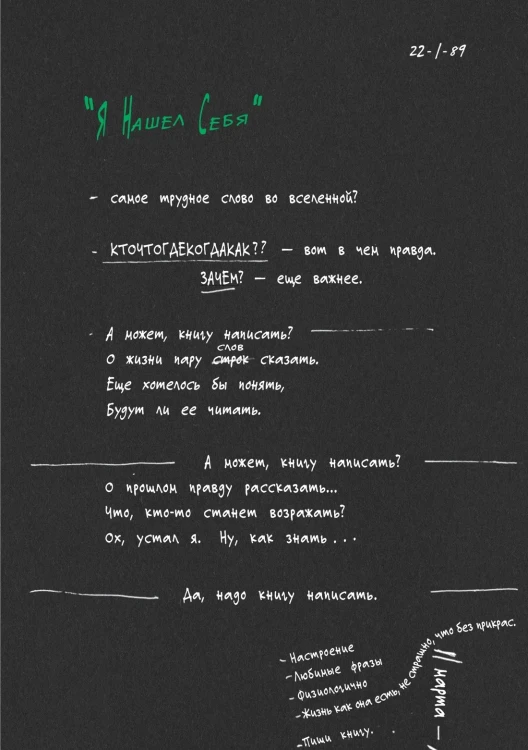 22-1-89
"Я Нашел Себя"
- самое трудное слово во вселенной?
- КТОЧТОГДЕКОГДАКАК?? — вот в чем правда.
ЗАЧЕМ? — еще важнее.
- А может, книгу написать?
слов
О жизни пару строк сказать.
Еще хотелось бы понять,
Будут ли ее читать.
А может, книгу написать?
О прошлом правду рассказать...
Что, кто-то станет возражать?
Ох, устал я. Ну, как знать...
Да, надо книгу написать.
- Настроение
- Любимые фразы
- Физиологично
- Жизнь как она есть, не страшно, что без прикрас.
- Пиши книгу...
11 марта —